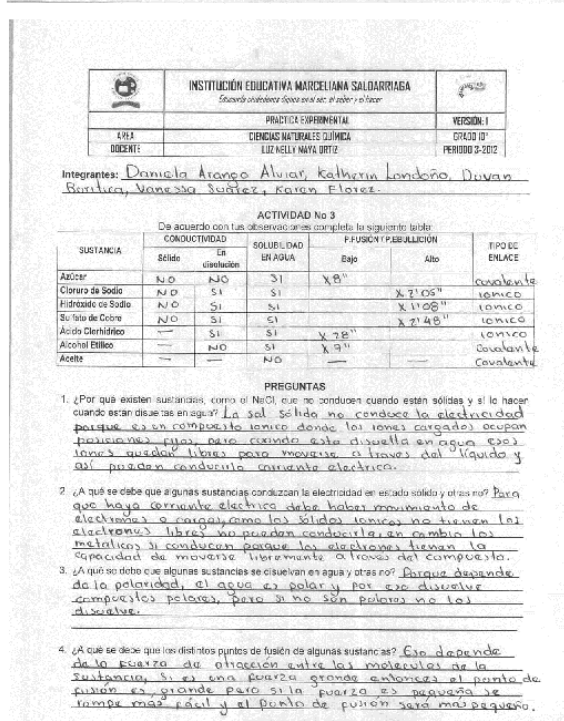 INSTITUCIÓN EDUCATIVA MARCELIANA SALDARRIAGA
PRACTICA EXPERIMENTAL VERSIÓN: 1
AREA CIENCIAS NATURALES QUÍMICA GRADO 10°
DOCENTE LUZ NELLY MAYA ORTIZ PERIODO 3-2012
Integrantes: Daniela Arango Alviar, Katherin Londoño, Duvan
Vanessa Suárez, Karen Florez.
ACTIVIDAD No 3
De acuerdo con tus observaciones completa la siguiente tabla:
SUSTANCIA CONDUCTIVIDAD SOLUBILIDAD EN AGUA P.FUSIÓN / P.EBULLICIÓN TIPO DE ENLACE
Sólido En disolución Bajo Alto
Azúcar NO NO SI X 8" covalente
Cloruro de Sodio NO SI SI X 2'05" ionico
Hidróxido de Sodio NO SI SI X 1'08" ionico
Sulfato de Cobre NO SI SI X 2'48" ionico
Ácido Clorhídrico — SI SI X 28" ionico
Alcohol Etílico — NO SI X 9" Covalente
Aceite — — NO — — Covalente
PREGUNTAS
1. ¿Por qué existen sustancias, como el NaCl, que no conducen cuando están sólidas y si lo hacen
cuando están disueltas en agua? La sal sólida no conduce la electricidad
porque es un compuesto ionico donde los iones cargados ocupan
posiciones fijas, pero cuando esta disuelta en agua esos
iones quedan libres para moverse a traves del líquido y
así pueden conducirla corriente electrica.
2. ¿A qué se debe que algunas sustancias conduzcan la electricidad en estado sólido y otras no? Para
que haya corriente electrica debe haber movimiento de
electrones o cargas, como los sólidos ionicos no tienen los
electrones libres no puedan conducirla, en cambio los
metalicos si conducen porque los electrones tienen la
capacidad de moverse libremente a traves del compuesto.
3. ¿A qué se debe que algunas sustancias se disuelvan en agua y otras no? Porque depende
de la polaridad, el agua es polar y por eso disuelve
compuestos polares, pero si no son polares no los
disuelve.
4. ¿A qué se debe que los distintos puntos de fusión de algunas sustancias? Eso depende
de la fuerza de atracción entre las moleculas de la
sustancia, si es una fuerza grande entonces el punto de
fusión es grande pero si la fuerza es pequeña se
rompe mas facil y el punto de fusión será mas pequeño.